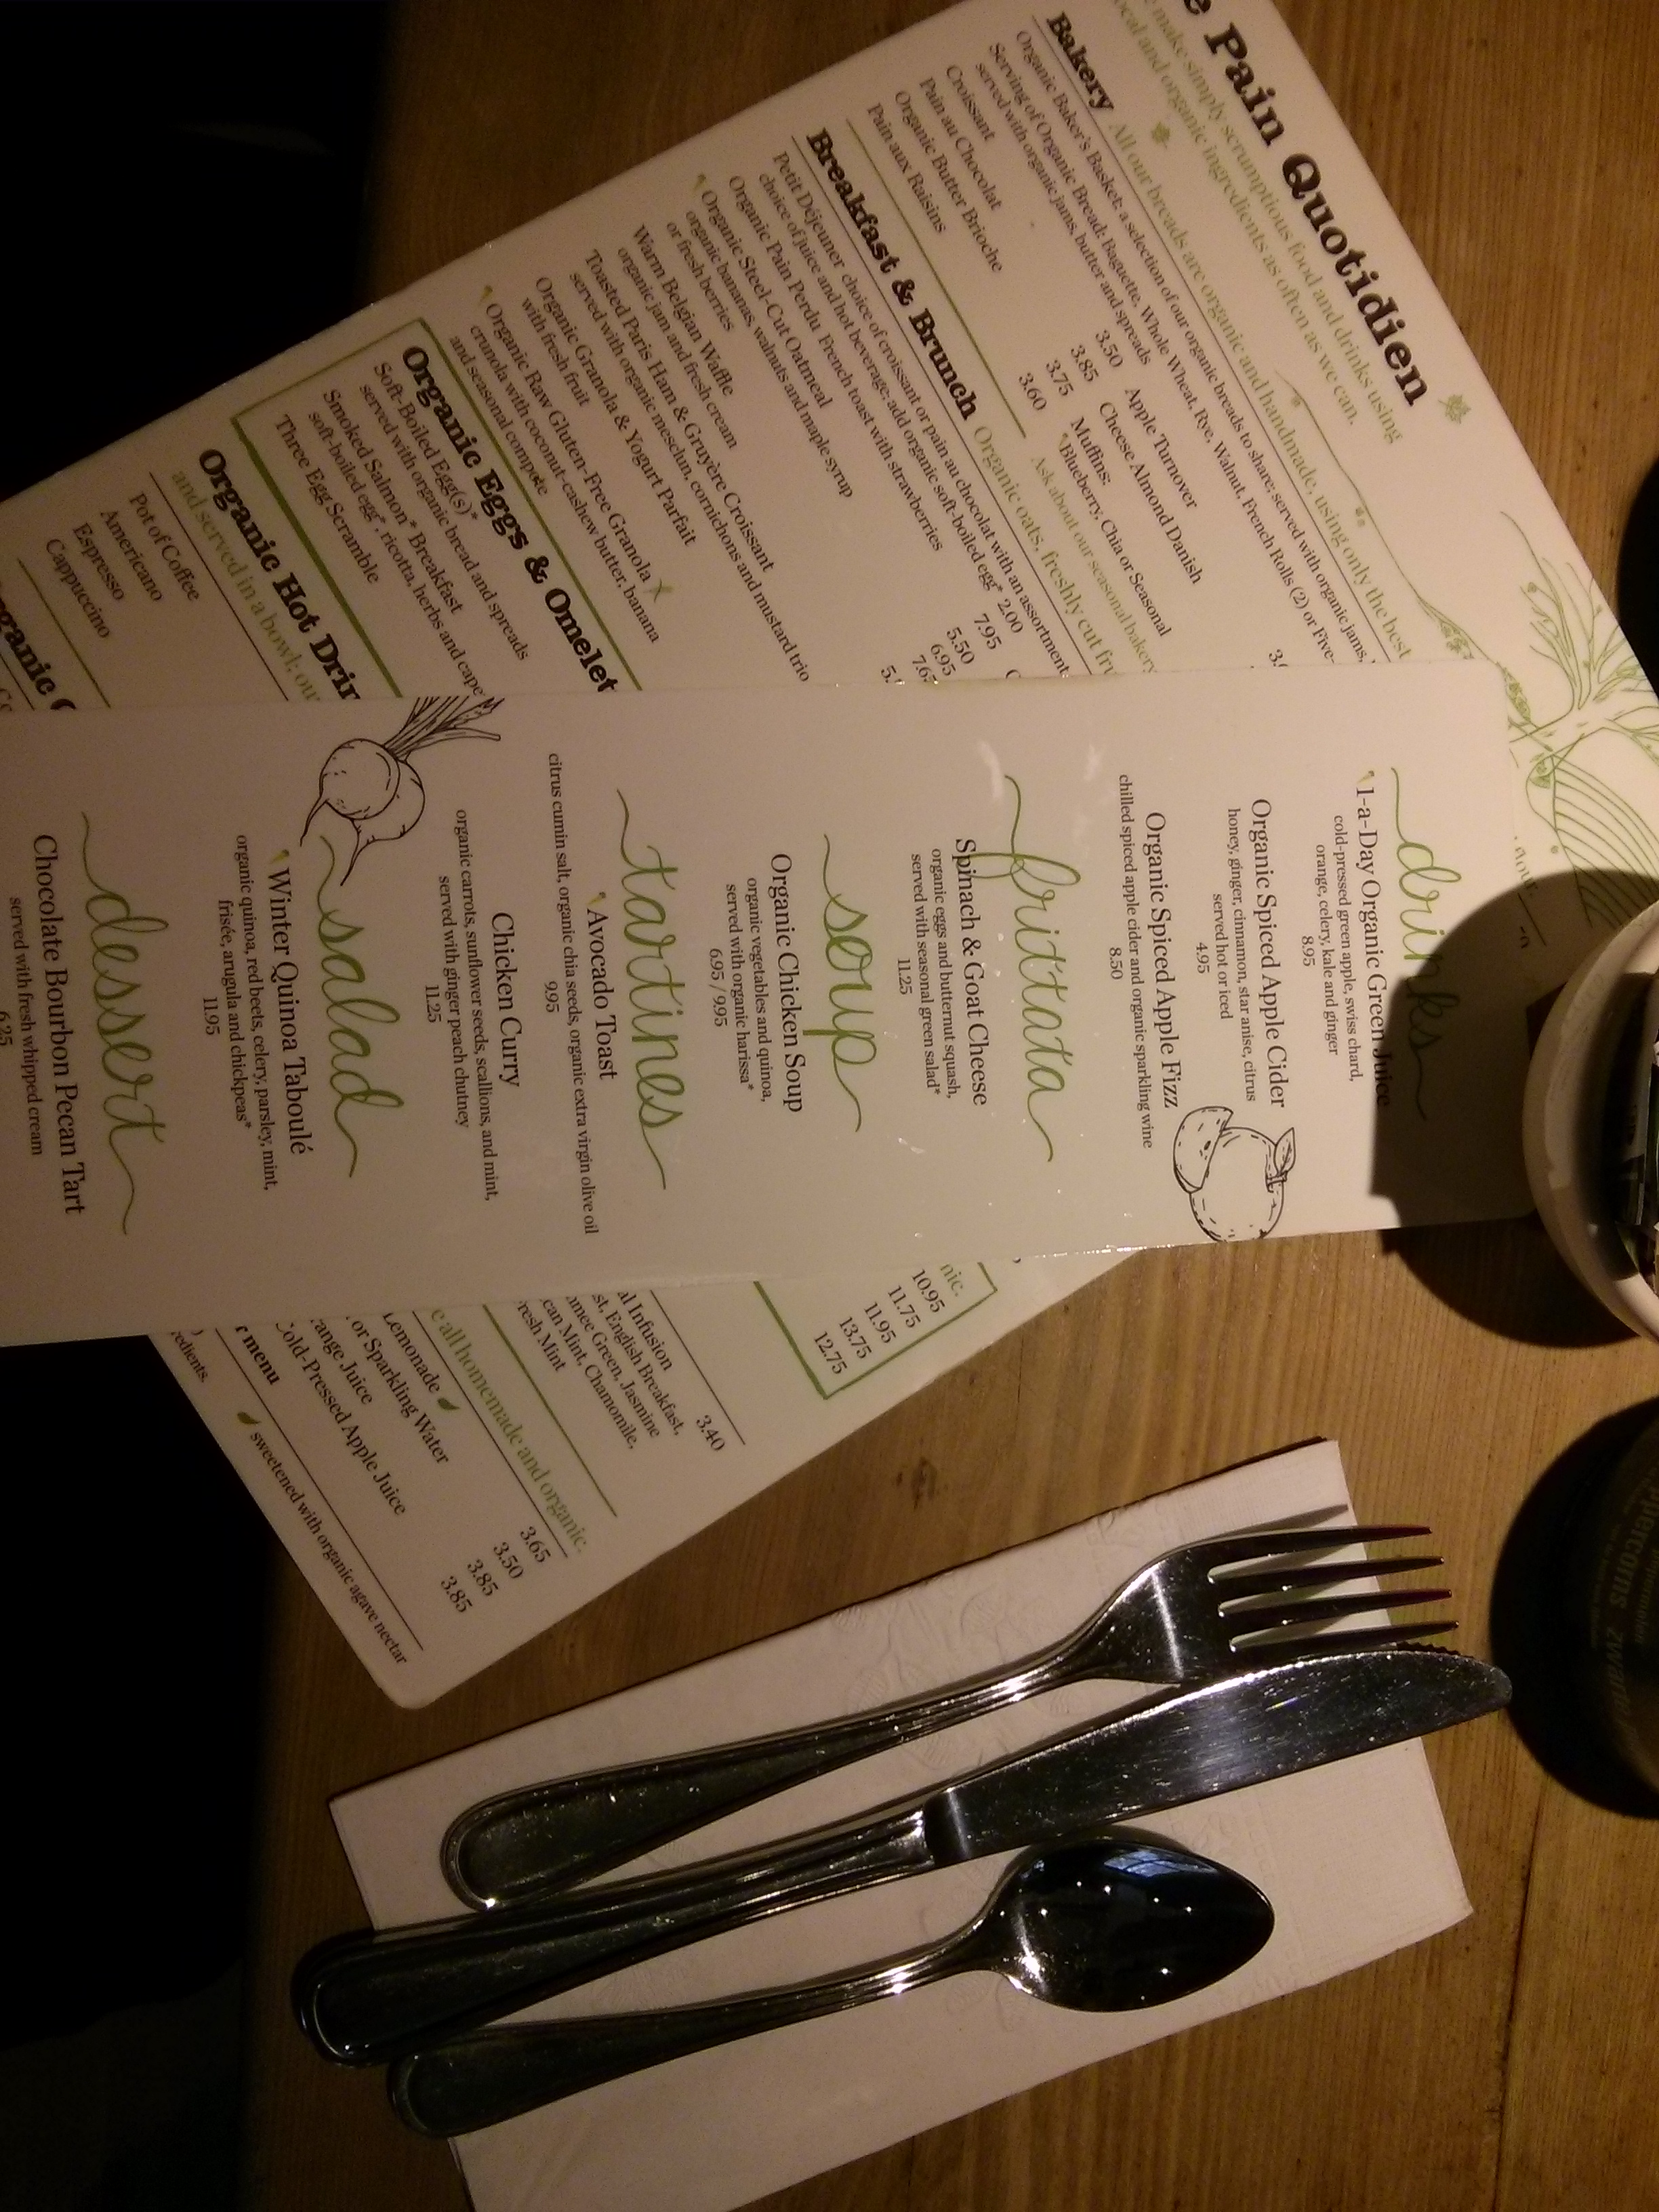 Pain Quotidien
make simply scrumptious food and drinks using
local and organic ingredients as often as we can.
Bakery All our breads are organic and handmade, using only the best
Organic Baker's Basket; a selection of our organic breads to share; served with organic jams,
Serving of Organic Bread: Baguette, Whole Wheat, Rye, Walnut, French Rolls (2) or Five-
served with organic jams, butter and spreads
Croissant 3.50
Pain au Chocolat 3.85
Organic Butter Brioche 3.75
Pain aux Raisins 3.60
Apple Turnover
Cheese Almond Danish
Muffins:
Blueberry, Chia or Seasonal
Ask about our seasonal bakery
Breakfast & Brunch Organic oats, freshly cut
Petit Déjeuner choice of croissant or pain au chocolat with an assortment
choice of juice and hot beverage; add organic soft-boiled egg* 2.00
Organic Pain Perdu French toast with strawberries 7.95
Organic Steel-Cut Oatmeal 5.50
organic bananas, walnuts and maple syrup 6.95
or fresh berries
Warm Belgian Waffle
organic jam and fresh cream
Toasted Paris Ham & Gruyère Croissant
served with organic mesclun, cornichons and mustard trio
Organic Granola & Yogurt Parfait
with fresh fruit
Organic Raw Gluten-Free Granola
crunola with coconut-cashew butter, banana
and seasonal compote
Organic Eggs & Omelet
Soft-Boiled Egg(s)*
served with organic bread and spreads
Smoked Salmon* Breakfast
soft-boiled egg*, ricotta, herbs and cape
Three Egg Scramble
Organic Hot Drin
and served in a bowl; our
Pot of Coffee
Americano
Espresso
Cappuccino
drinks
1-a-Day Organic Green Juice
cold-pressed green apple, swiss chard,
orange, celery, kale and ginger
8.95
Organic Spiced Apple Cider
honey, ginger, cinnamon, star anise, citrus
served hot or iced
4.95
Organic Spiced Apple Fizz
chilled spiced apple cider and organic sparkling wine
8.50
frittata
Spinach & Goat Cheese
organic eggs and butternut squash,
served with seasonal green salad*
11.25
soup
Organic Chicken Soup
organic vegetables and quinoa,
served with organic harissa*
6.95 / 9.95
tartines
Avocado Toast
citrus cumin salt, organic chia seeds, organic extra virgin olive oil
9.95
Chicken Curry
organic carrots, sunflower seeds, scallions, and mint,
served with ginger peach chutney
11.25
salad
Winter Quinoa Taboulé
organic quinoa, red beets, celery, parsley, mint,
frisée, arugula and chickpeas*
11.95
dessert
Chocolate Bourbon Pecan Tart
served with fresh whipped cream
6.25
nic.
10.95
11.75
11.95
13.75
12.75
al Infusion 3.40
st, English Breakfast,
mee Green, Jasmine
can Mint, Chamomile,
resh Mint
e all homemade and organic.
Lemonade 3.65
or Sparkling Water 3.50
range Juice 3.85
Cold-Pressed Apple Juice 3.85
r menu
redients.
sweetened with organic agave nectar